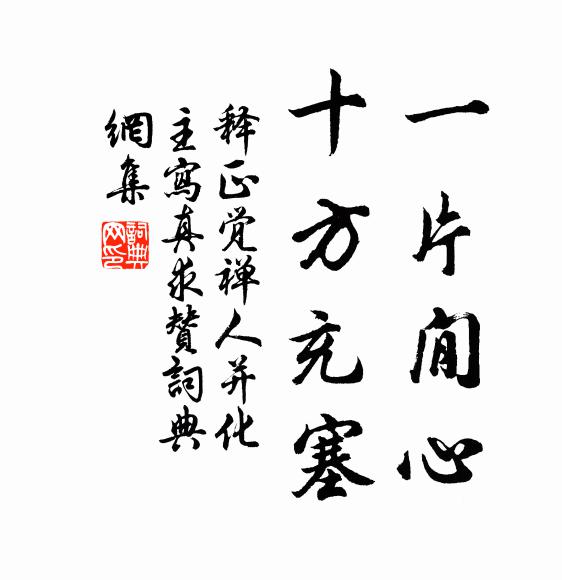 一片閒心
十方充塞
释正觉禅人并化
主寫真求贊詞典
網集
詞典网印